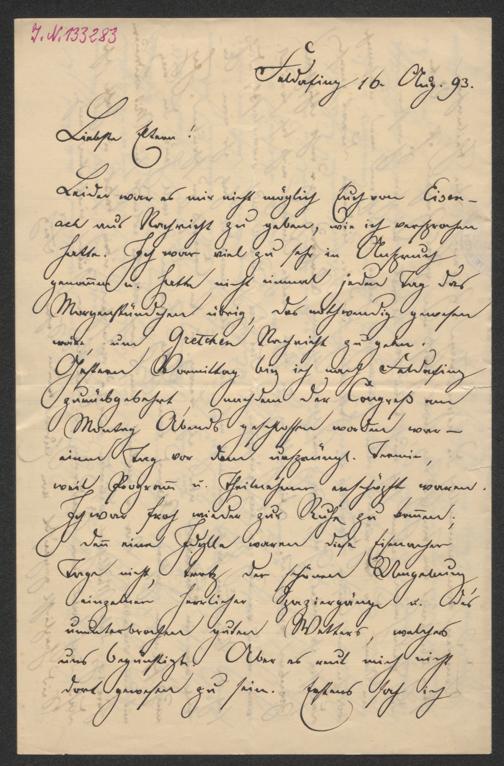 J. N. 133283
Feldafing 16. Aug. 93.
Liebste Eltern!
Leider war es mir nicht möglich Euch von Eisen-
ach aus Nachricht zu geben, wie ich versprochen
hatte. Ich war viel zu sehr in Anspruch
genom̅en u. hatte nicht einmal jeden Tag das
Morgenstündchen übrig, das nothwendig gewesen
wäre, um Gretchen Nachricht zu geben.
Gestern Vormittag bin ich nach Feldafing
zurückgekehrt nachdem der Congreß am
Montag Abends geschlossen worden war –
einen Tag vor dem ursprüngl. Termin,
weil Program̅ u. Theilnehmer erschöpft waren.
Ich war froh wieder zur Ruhe zu kom̅en;
denn eine Idylle waren diese Eisenacher
Tage nicht, trotz der schönen Umgebung,
einzelner herrlicher Spaziergänge u. des
ununterbrochen guten Wetters, welches
uns begünstigte. Aber es reut mich nicht
dort gewesen zu sein. Erstens sah ich